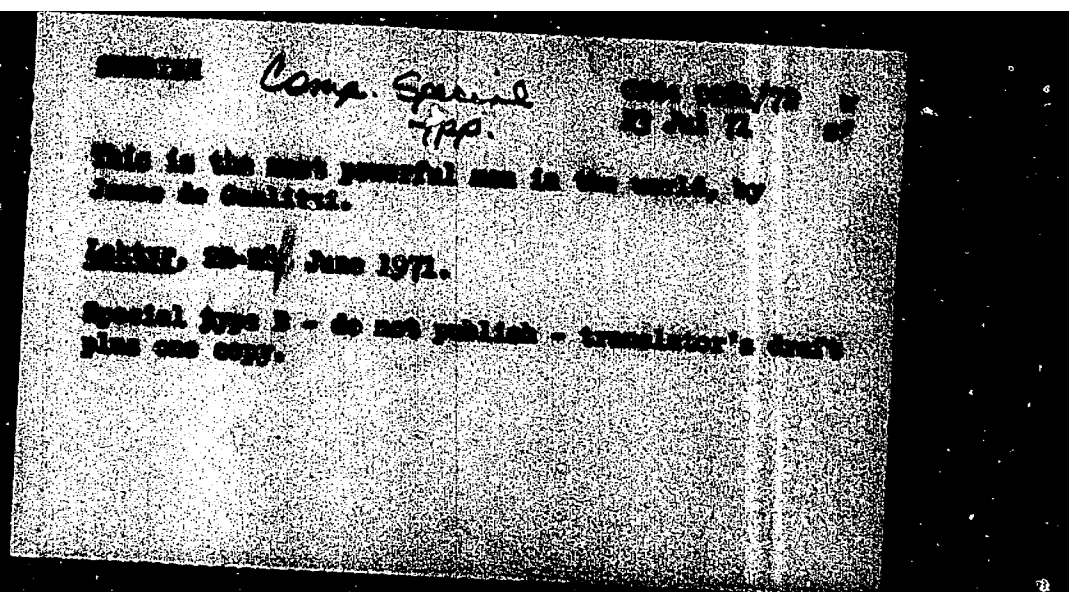 Comp. Special
7pp.
23 Jul 71
This is the most powerful man in the world, by
James de
June 1971.
Special type B - do not publish - translator's draft
plus one copy.